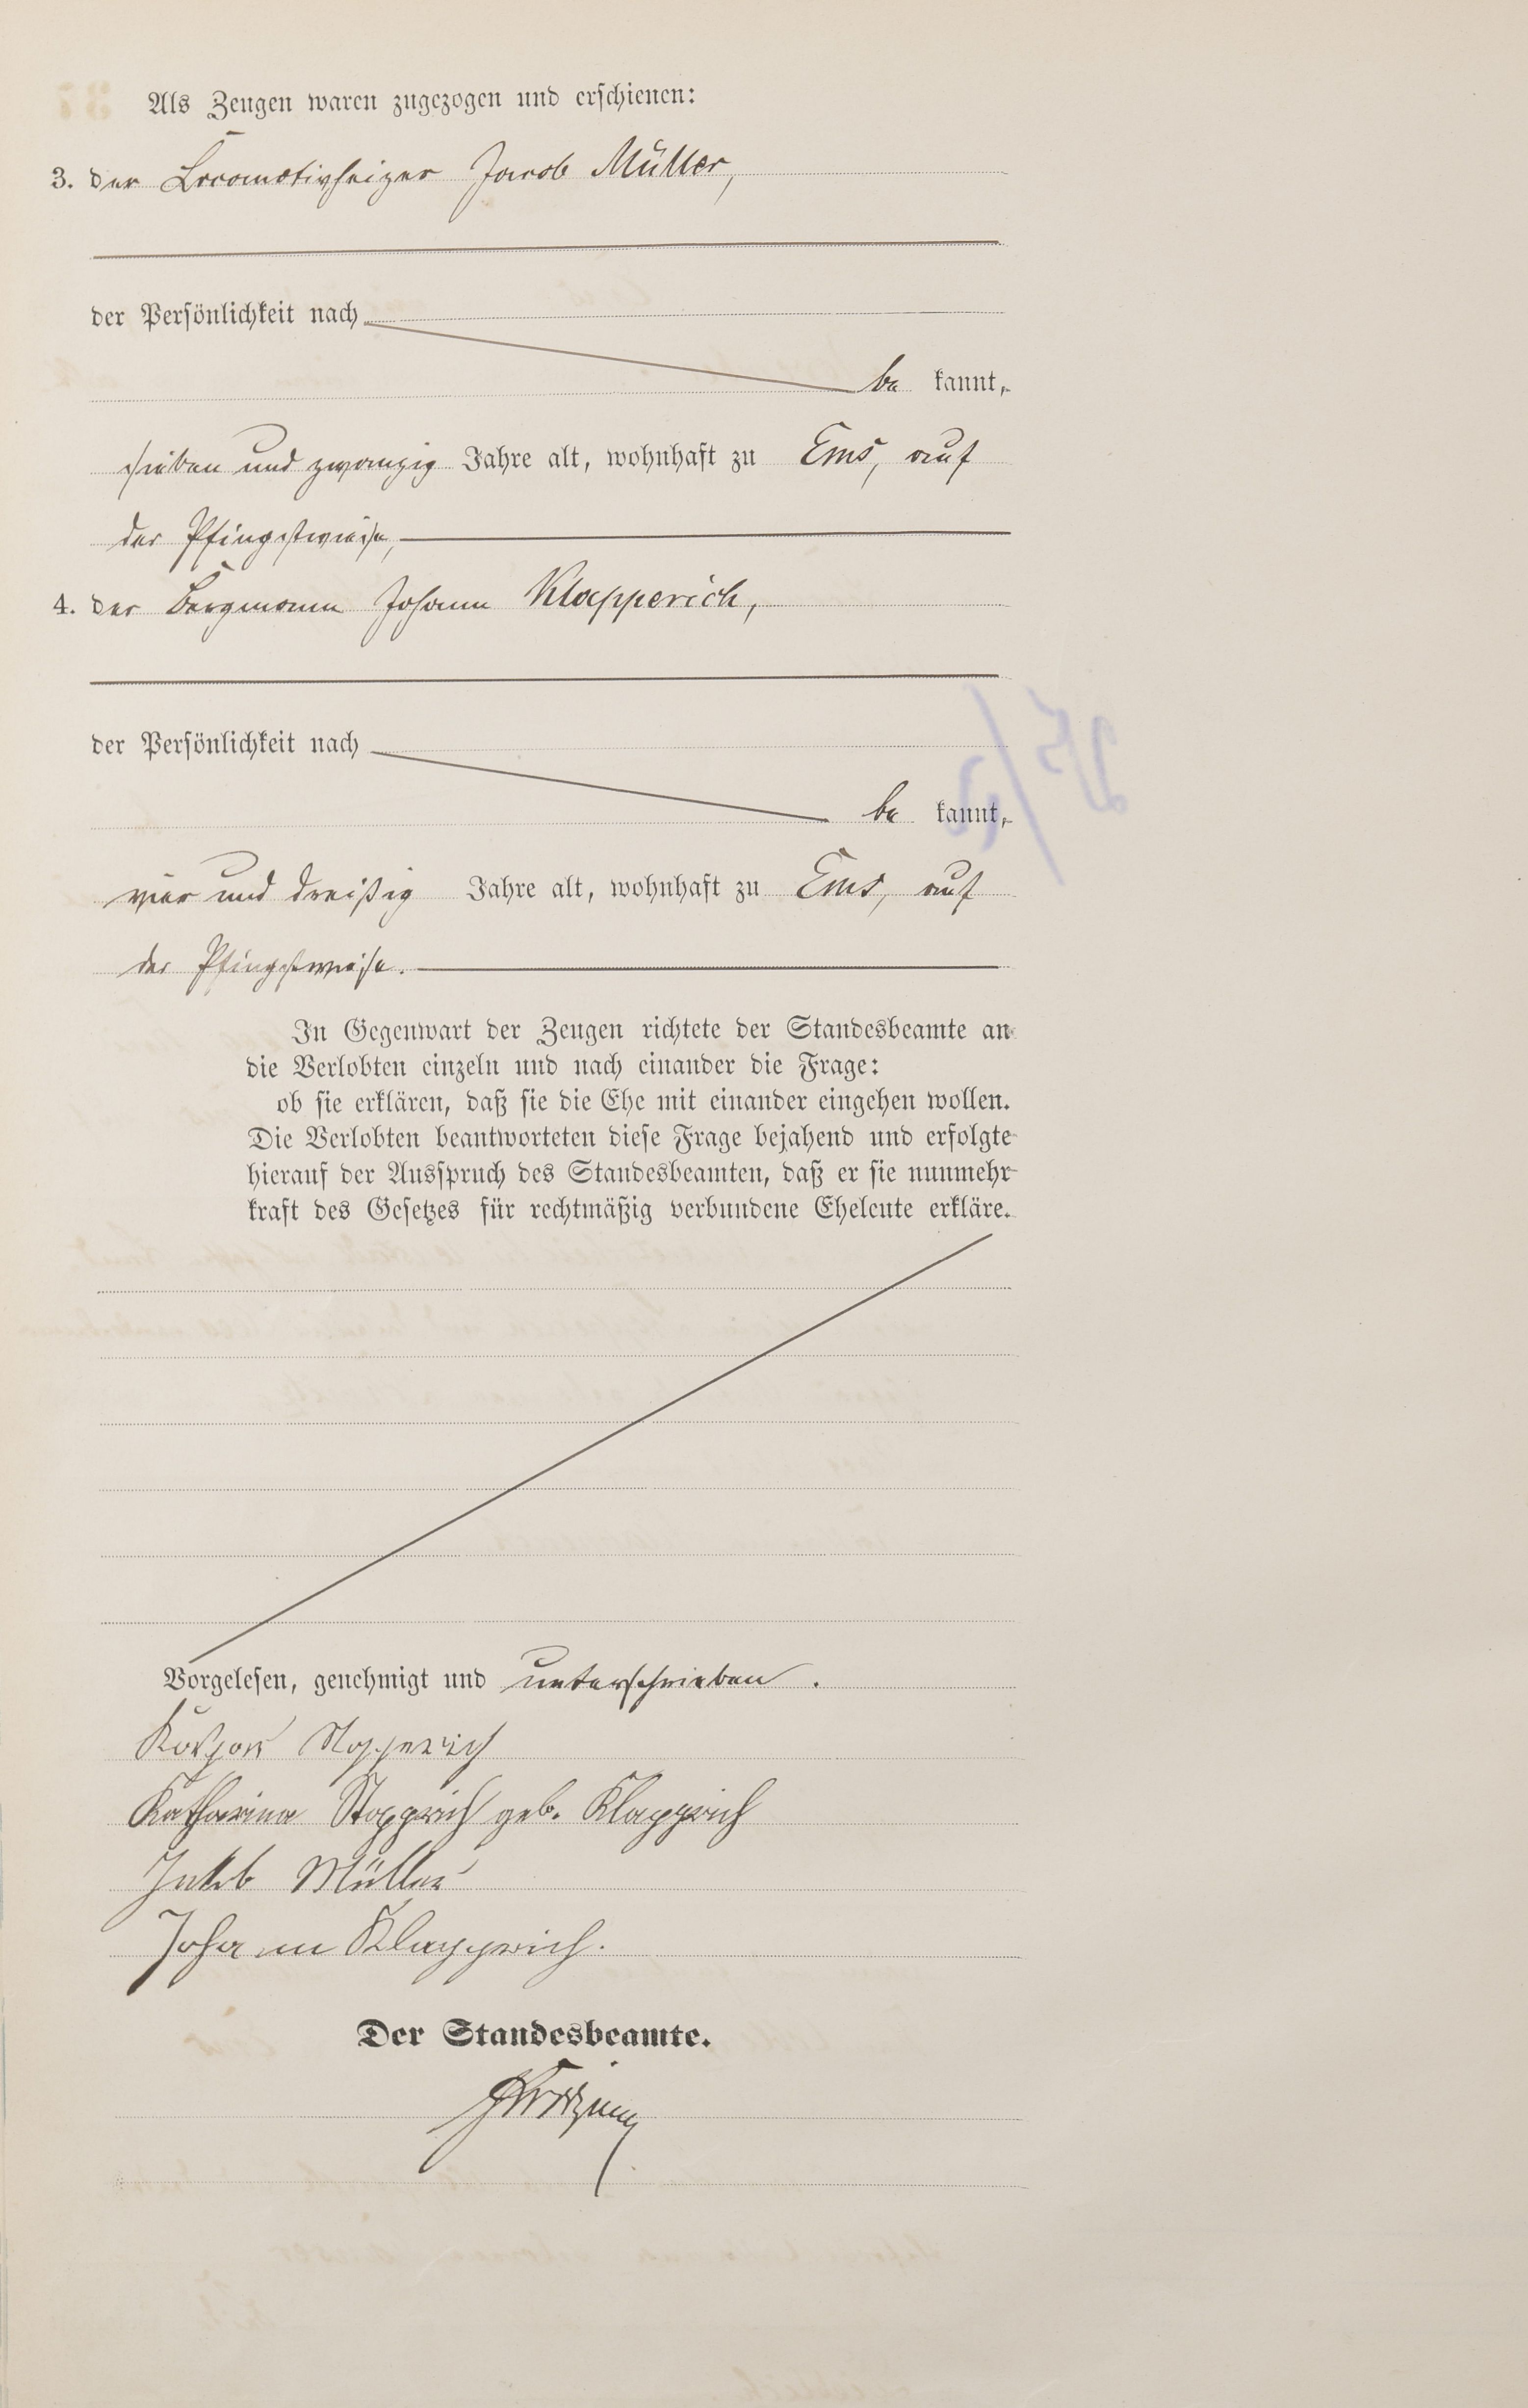 Als Zeugen waren zugezogen und erschienen:
3. der Locomotivheizer Jacob Müller,
der Persönlichkeit nach
be kannt,
sieben und zwanzig Jahre alt, wohnhaft zu Ems, auf
der Pfingstwiese,
4. der Bergmann Johann Klapperich,
der Persönlichkeit nach
be kannt,
vier und dreißig Jahre alt, wohnhaft zu Ems, auf
der Pfingstwiese.
In Gegenwart der Zeugen richtete der Standesbeamte an
die Verlobten einzeln und nach einander die Frage:
ob sie erklären, daß sie die Ehe mit einander eingehen wollen.
Die Verlobten beantworteten diese Frage bejahend und erfolgte
hierauf der Ausspruch des Standesbeamten, daß er sie nunmehr
kraft des Gesetzes für rechtmäßig verbundene Eheleute erkläre.
Vorgelesen, genehmigt und unterschrieben.
Katharina geb. Klapprich
Jakob Müller
Johann Klapprich.
Der Standesbeamte.